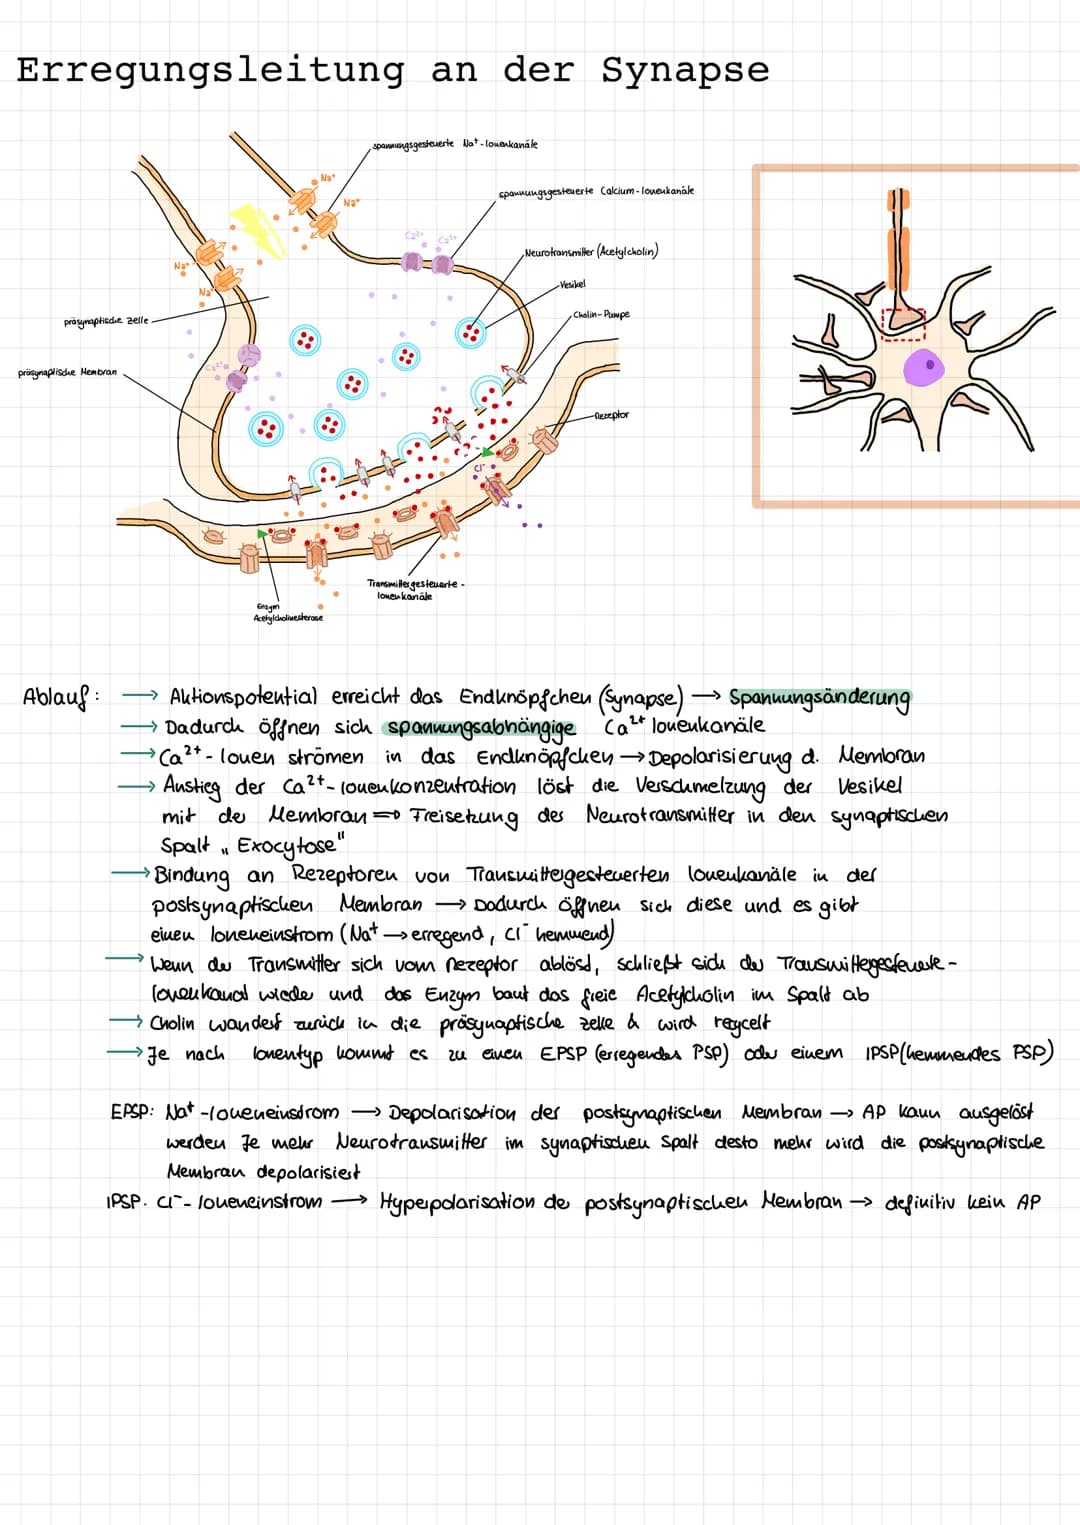 Erregungsleitung an der Synapse
spannungsgesteuerte Na⁺-Ionenkanäle
Na⁺
Na⁺
spannungsgesteuerte Calcium-Ionenkanäle
Ca²⁺
Ca²⁺
Neurotransmitter (Acetylcholin)
Na⁺
Vesikel
Na⁺
Cholin-Pumpe
präsynaptische Zelle
Ca²⁺
präsynaptische Membran
Rezeptor
Cl⁻
Transmittergesteuerte-
Ionenkanäle
Enzym
Acetylcholinesterase
Ablauf: → Aktionspotential erreicht das Endknöpfchen (Synapse) → Spannungsänderung
→ Dadurch öffnen sich spannungsabhängige Ca²⁺ Ionenkanäle
→ Ca²⁺-Ionen strömen in das Endknöpfchen → Depolarisierung d. Membran
→ Anstieg der Ca²⁺-Ionenkonzentration löst die Verschmelzung der Vesikel
mit der Membran ⇒ Freisetzung der Neurotransmitter in den synaptischen
Spalt „Exocytose"
→ Bindung an Rezeptoren von Transmittergesteuerten Ionenkanäle in der
postsynaptischen Membran → Dadurch öffnen sich diese und es gibt
einen Ioneneinstrom (Na⁺ → erregend, Cl⁻ hemmend)
→ Wenn der Transmitter sich vom Rezeptor ablöst, schließt sich der Transmittergesteuerte-
Ionenkanal wieder und das Enzym baut das freie Acetylcholin im Spalt ab
→ Cholin wandert zurück in die präsynaptische Zelle & wird recycelt
→ Je nach Ionentyp kommt es zu einen EPSP (erregendes PSP) oder einem IPSP (hemmendes PSP)
EPSP: Na⁺-Ioneneinstrom → Depolarisation der postsynaptischen Membran → AP kann ausgelöst
werden Je mehr Neurotransmitter im synaptischen Spalt desto mehr wird die postsynaptische
Membran depolarisiert
IPSP. Cl⁻-Ioneneinstrom → Hyperpolarisation der postsynaptischen Membran → definitiv kein AP